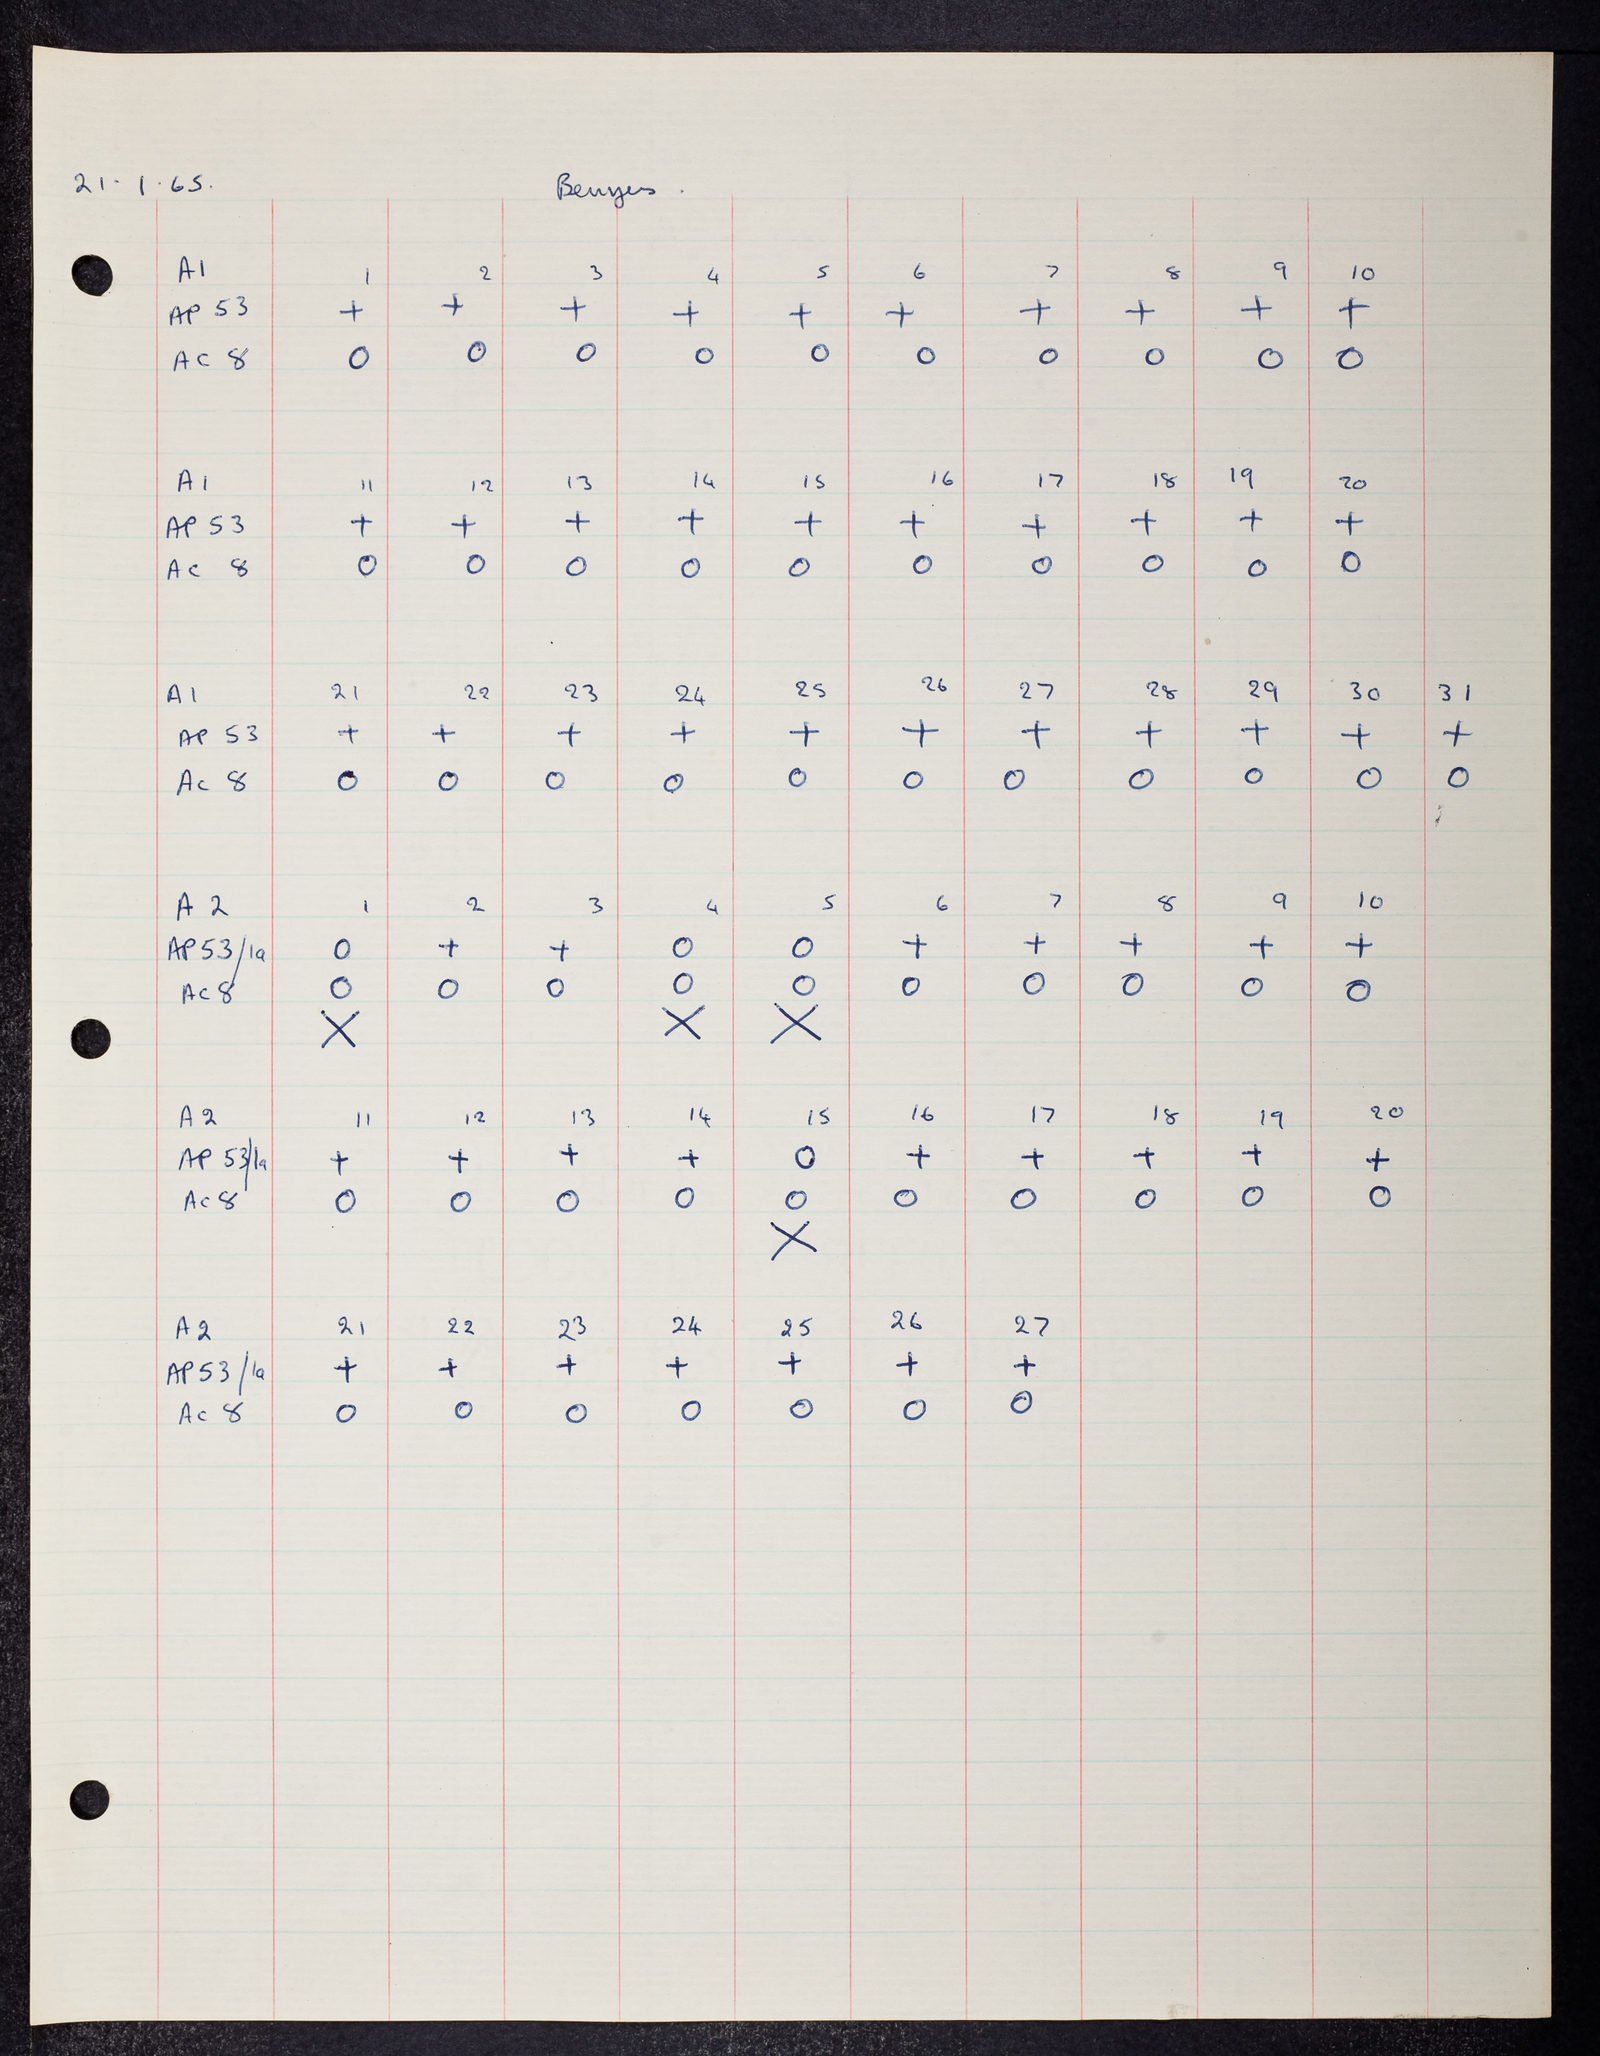 21.1.65. Benyes.
A1 1 2 3 4 5 6 7 8 9 10
AP 53 + + + + + + + + + +
Ac 8 O O O O O O O O O O
A1 11 12 13 14 15 16 17 18 19 20
AP 53 + + + + + + + + + +
Ac 8 O O O O O O O O O O
A1 21 22 23 24 25 26 27 28 29 30 31
AP 53 + + + + + + + + + + +
Ac 8 O O O O O O O O O O O
A2 1 2 3 4 5 6 7 8 9 10
AP53/1a O + + O O + + + + +
Ac8 O O O O O O O O O O
X X X
A2 11 12 13 14 15 16 17 18 19 20
AP 53/1a + + + + O + + + + +
Ac8 O O O O O O O O O O
X
A2 21 22 23 24 25 26 27
AP53/1a + + + + + + +
Ac 8 O O O O O O O